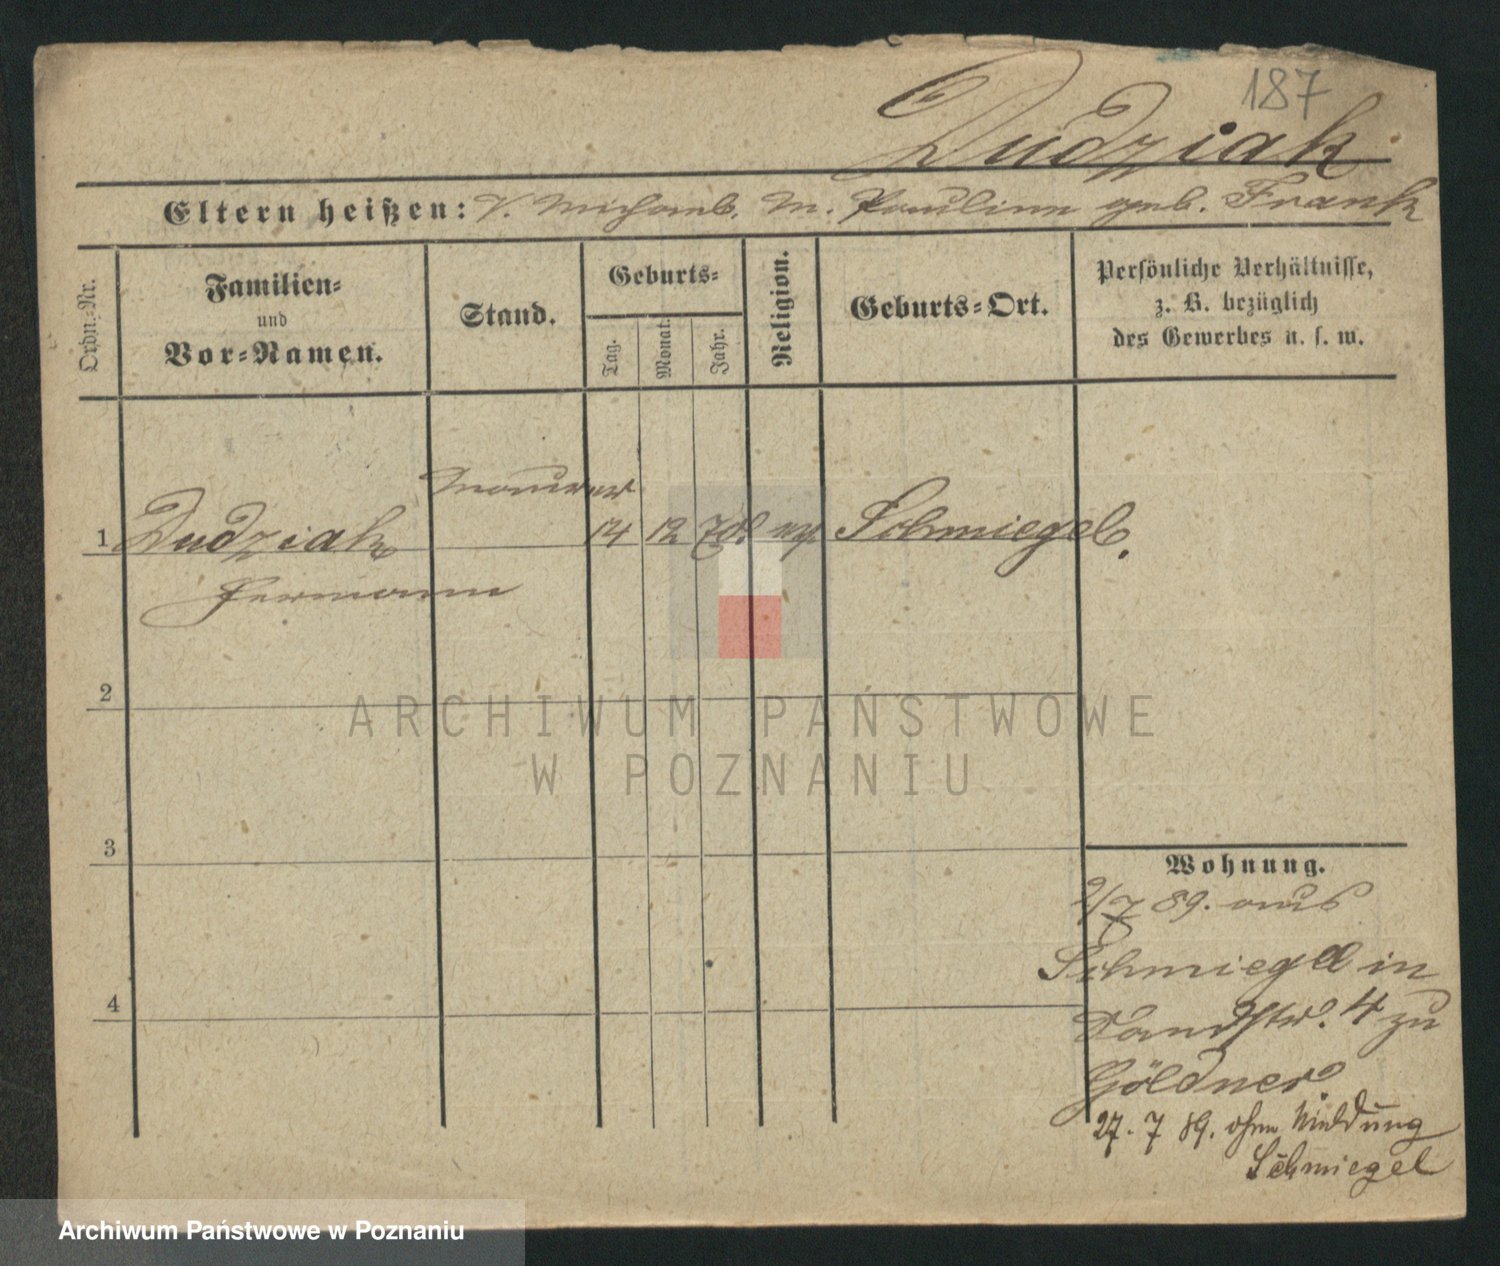 187
Dudziak
Eltern heißen: V. Michael. M. Pauline geb. Frank
Ordn.-Nr.
Familien-
und
Vor-Namen.
Stand.
Geburts-
Tag.
Monat.
Jahr.
Religion.
Geburts-Ort.
Persönliche Verhältnisse,
z. B. bezüglich
des Gewerbes u. s. w.
Maurer
1 Dudziak 14 12 Schmiegel.
Hermann
2
3
4
Wohnung.
2/7 89. aus
Schmiegel in
4 zu
Göldner
27. 7 89. ohne Meldung
Schmiegel
ARCHIWUM PAŃSTWOWE
W POZNANIU
Archiwum Państwowe w Poznaniu